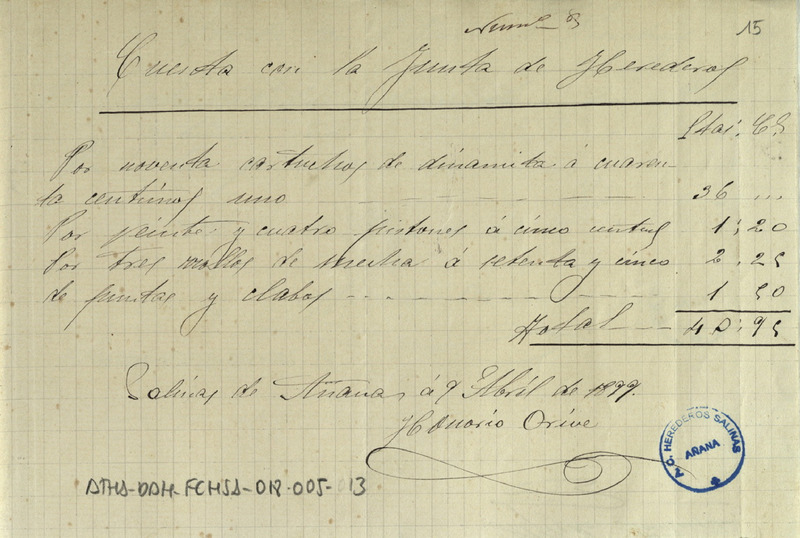 Num 8
15
Cuenta con la Junta de Herederos
Ptas. Cs
Por noventa cartuchos de dinamita á cuaren-
ta centimos uno 36 ...
Por veinte y cuatro pistones á cinco 1 : 20
Por tres rollos de mecha á setenta y cinco 2 . 25
de puntas y clabos 1 50
Total 40 : 95
Salinas de Añana á 9 Abril de 1899.
Honorio Orive
A.C. HEREDEROS SALINAS
AÑANA
ATHA-DAH-FCHSA-018-005-013